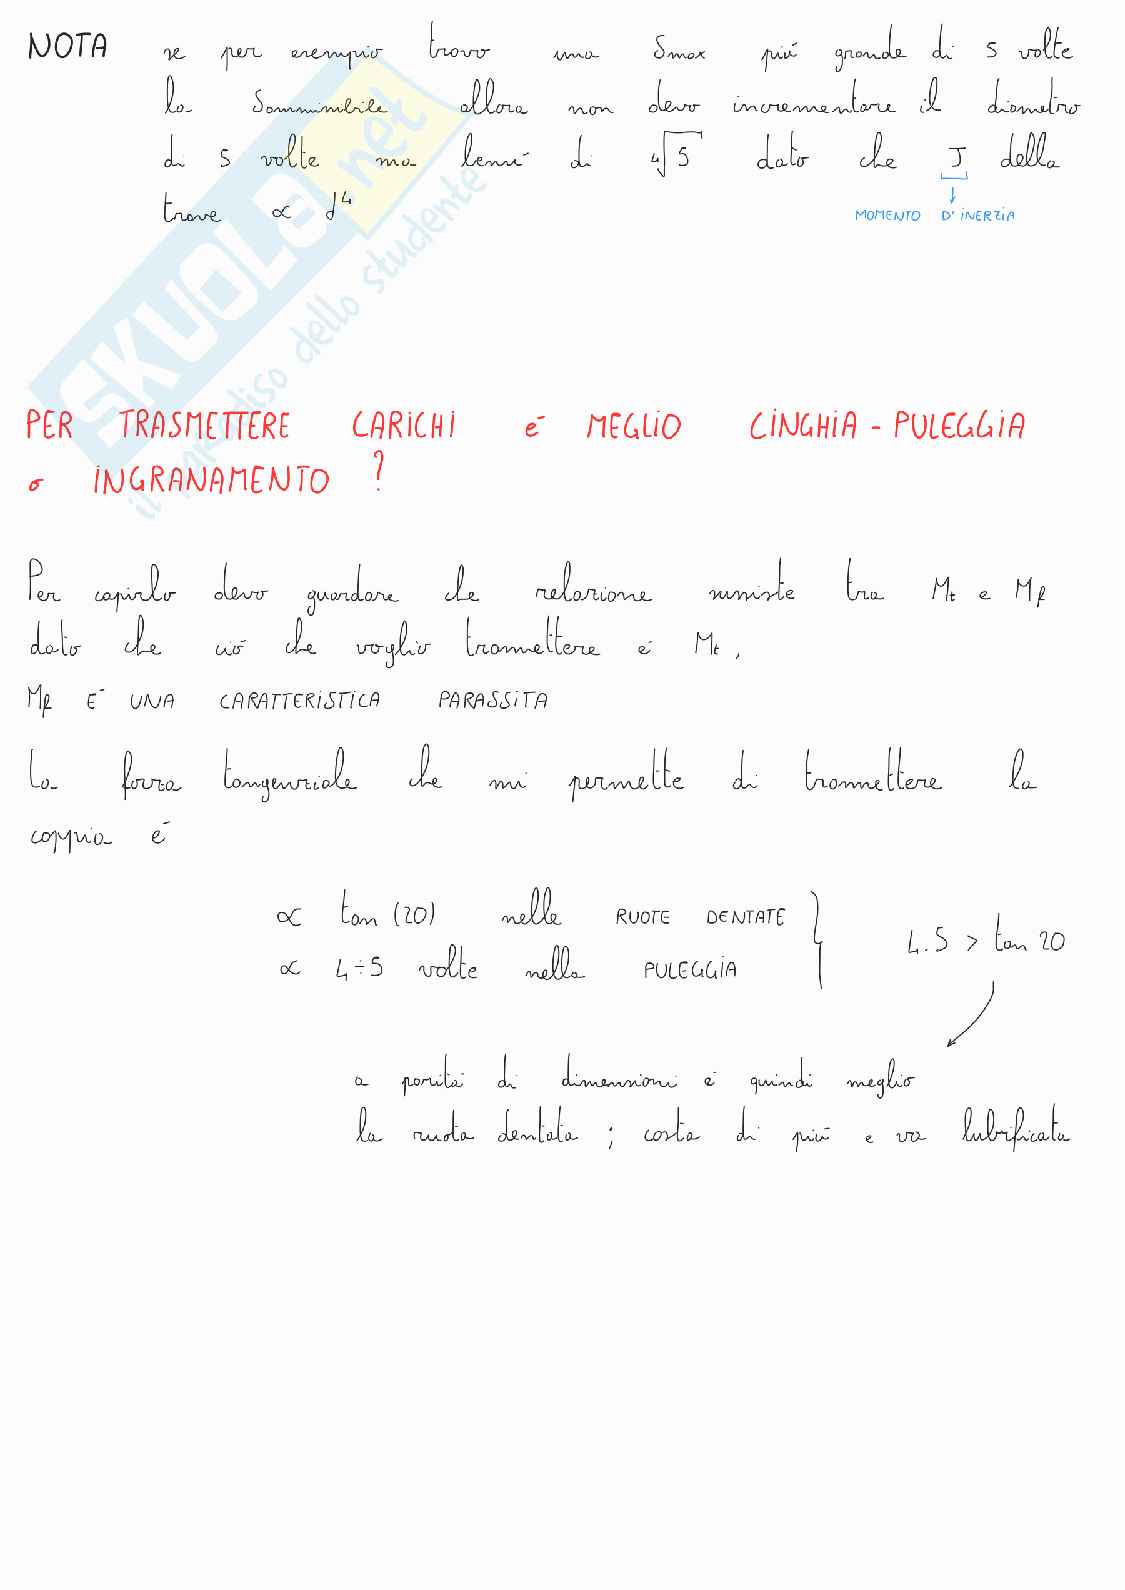 NOTA se per esempio trovo una Smax più grande di 5 volte
la Sammissibile allora non devo incrementare il diametro
di 5 volte ma bensì di ∜5 dato che J della
trave ∝ d⁴
MOMENTO D'INERZIA
SKUOLA.net
il paradiso dello studente
PER TRASMETTERE CARICHI é MEGLIO CINGHIA - PULEGGIA
o INGRANAMENTO ?
Per capirlo devo guardare che relazione sussiste tra Mt e Mf
dato che ciò che voglio trasmettere é Mt,
Mf E' UNA CARATTERISTICA PARASSITA
La forza tangenziale che mi permette di trasmettere la
coppia é
∝ tan (20) nelle RUOTE DENTATE
∝ 4÷5 volte nella PULEGGIA
4.5 > tan 20
a parità di dimensioni é quindi meglio
la ruota dentata ; costa di più e va lubrificata